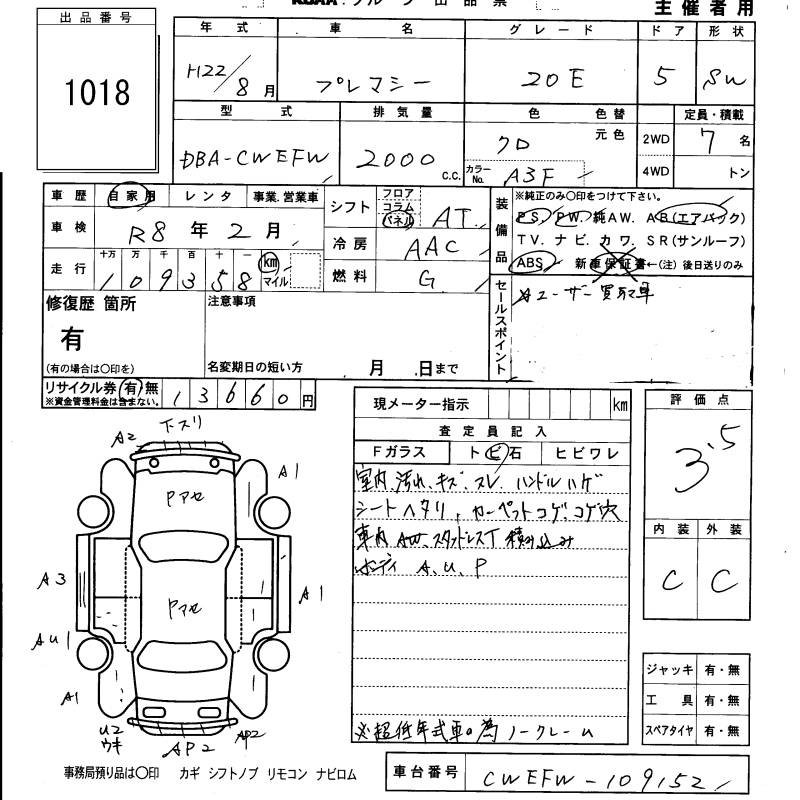 出品票
主催者用
出品番号
1018
年式 車名 グレード ドア 形状
H22/8月 プレマシー 20E 5 SW
型式 排気量 色 色替 定員・積載
元色
DBA-CWEFW 2000 C.C. クロ 2WD 7名
カラーNo. A3F 4WD トン
車歴 自家用 レンタ 事業.営業車
車検 R8年2月
走行 十万 万 千 百 十 一 km マイル
109358
シフト フロア コラム パネル AT
冷房 AAC
燃料 G
装備品
※純正のみ〇印をつけて下さい。
P.S. P.W. 純AW. A.B(エアバック)
T.V. ナビ. カワ. S.R(サンルーフ)
ABS 新車保証書←(注)後日送りのみ
セールスポイント
ユーザー買取車
修復歴 箇所
有
(有の場合は〇印を)
注意事項
名変期日の短い方 月 日まで
リサイクル券 有 無 13660円
※資金管理料金は含まない。
現メーター指示 km
査定員記入
Fガラス トビ石 ヒビワレ
室内 汚れ、キズ、スレ、ハンドルハゲ
シートヘタリ、カーペットコゲ、コゲ穴
車内 AW、スタッドレスT 積み込み
ボディ A、U、P
※超低年式車の為ノークレーム
評価点
3.5
内装 外装
C C
ジャッキ 有・無
工具 有・無
スペアタイヤ 有・無
下スリ
A2
A1
Pアセ
A3
Pアセ
A1
AU1
A1
U2
ウキ
AP2
AP2
事務局預り品は〇印 カギ シフトノブ リモコン ナビロム
車台番号 CWEFW-109152